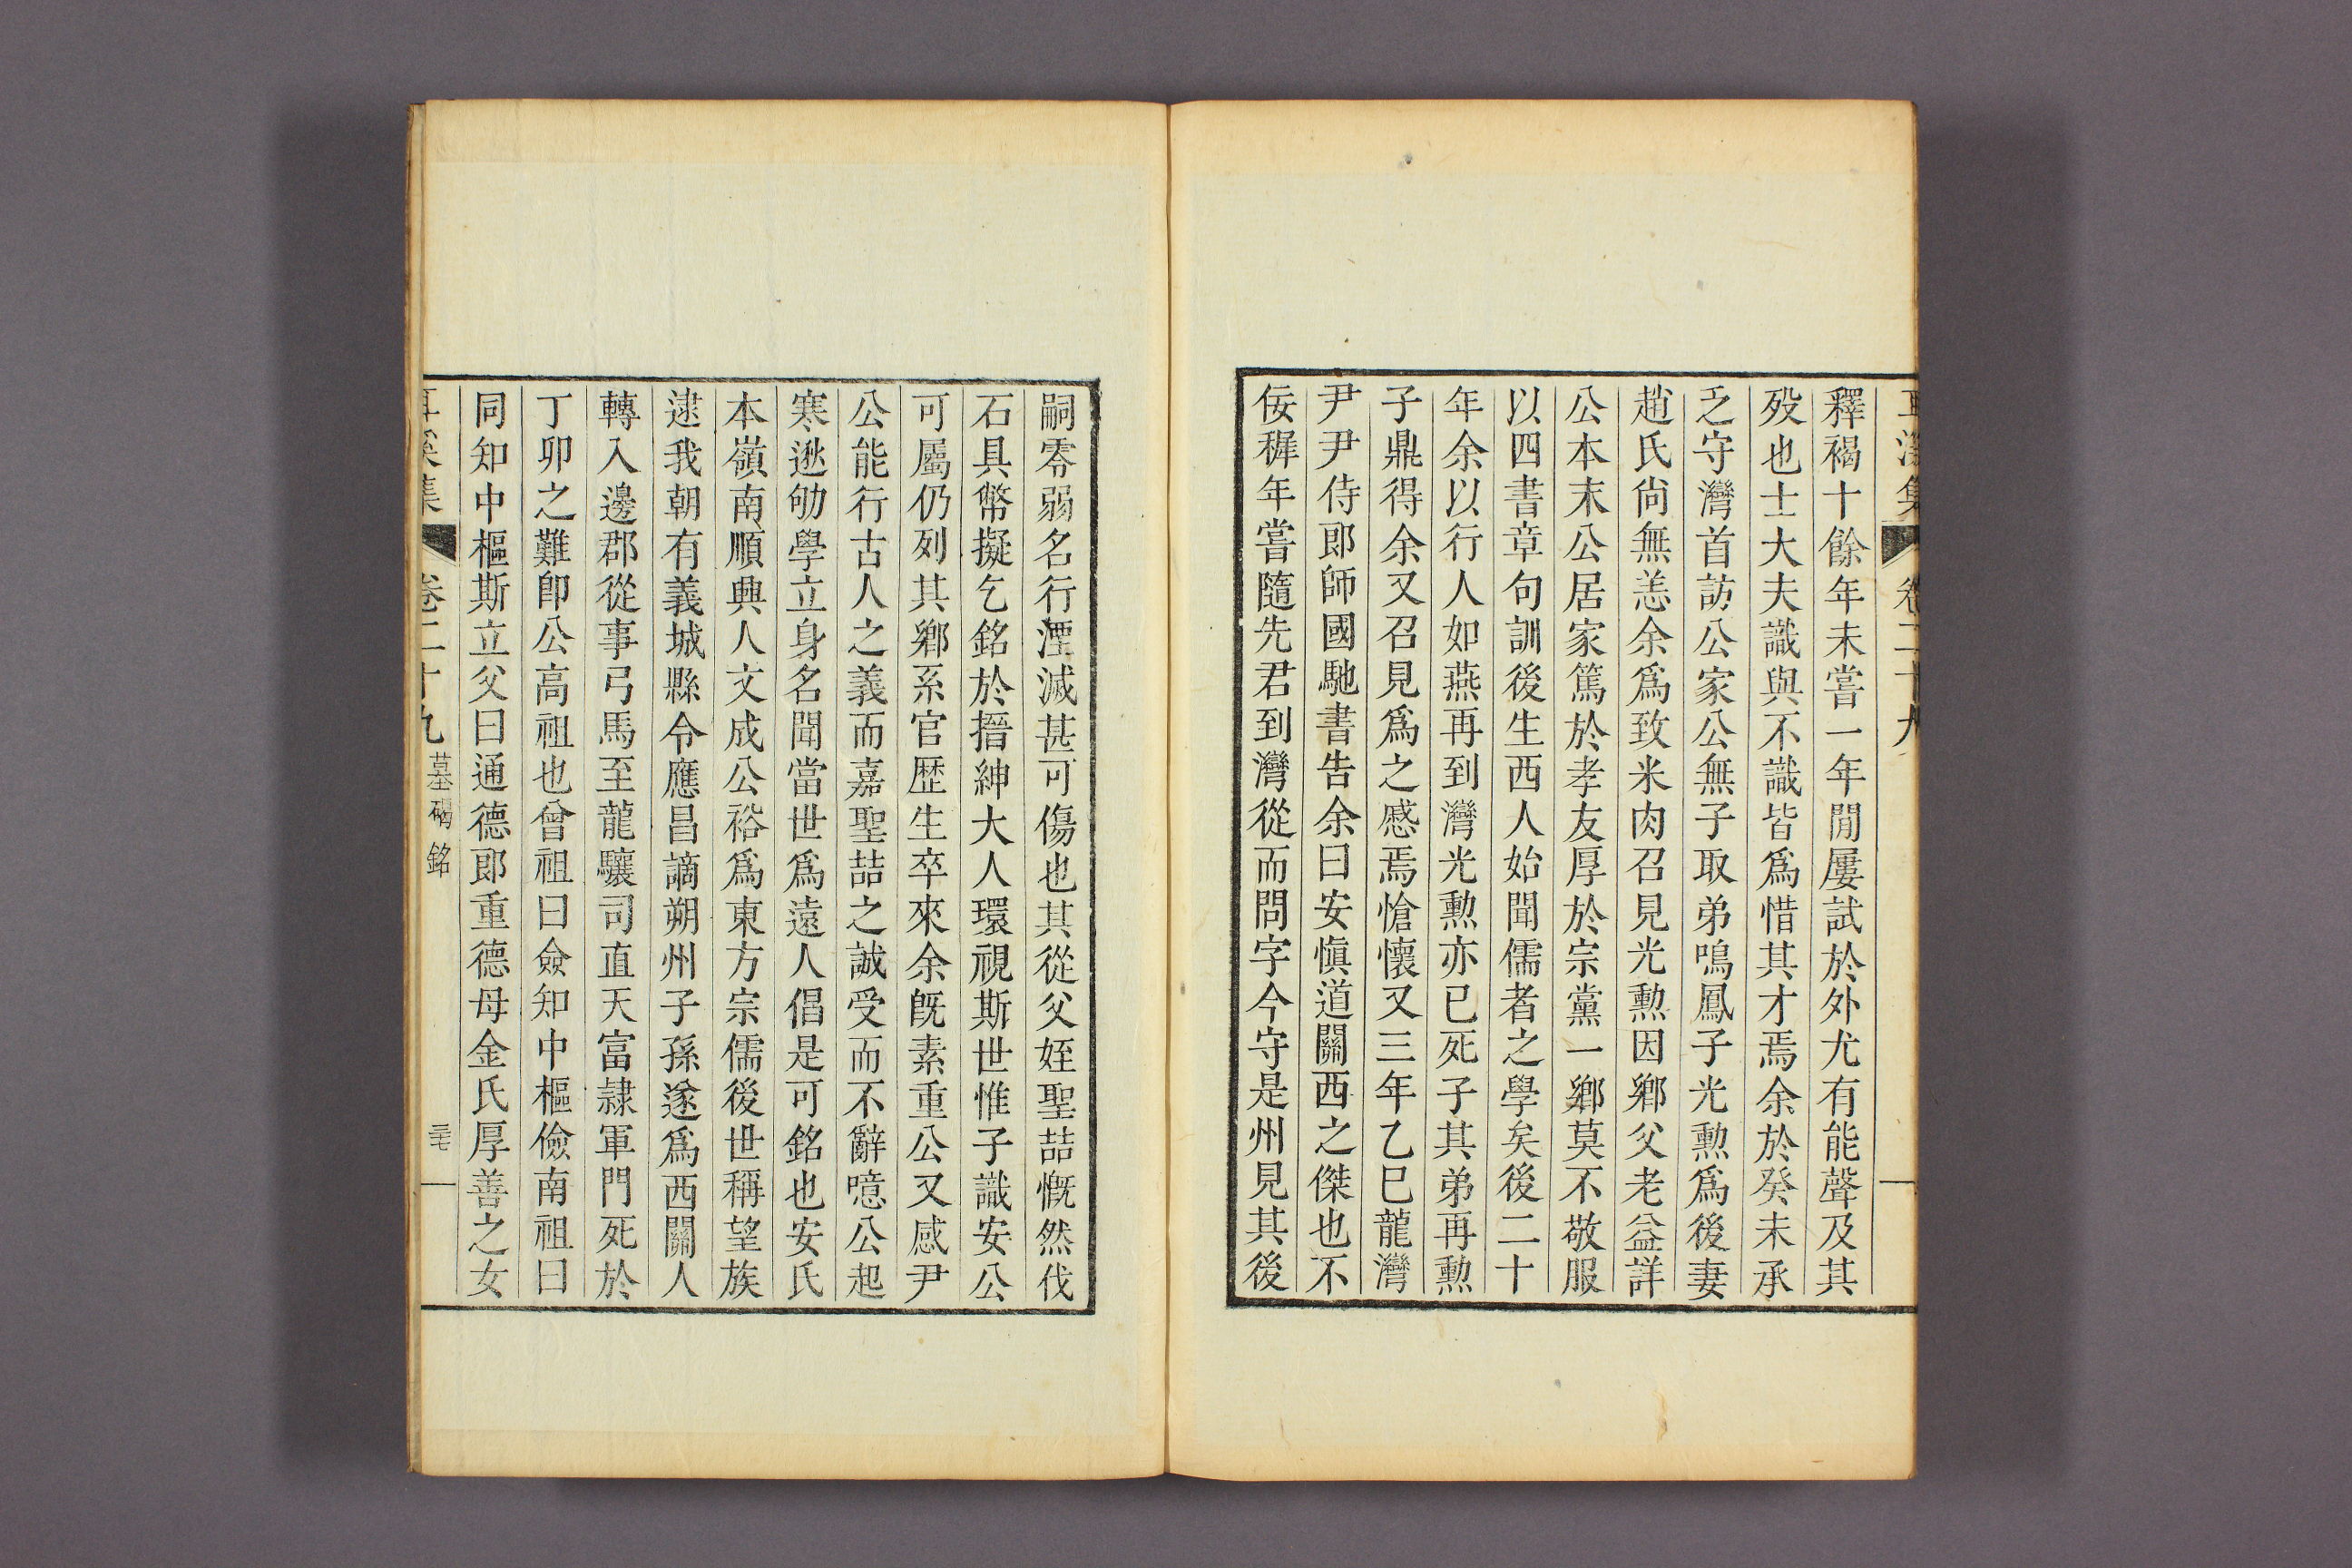 耳溪集 卷二十九
釋褐十餘年未嘗一年閒屢試於外尤有能聲及其
歿也士大夫識與不識皆爲惜其才焉余於癸未承
乏守灣首訪公家公無子取弟鳴鳳子光勲爲後妻
趙氏尙無恙余爲致米肉召見光勲因鄕父老益詳
公本末公居家篤於孝友厚於宗黨一鄕莫不敬服
以四書章句訓後生西人始聞儒者之學矣後二十
年余以行人如燕再到灣光勲亦已死子其弟再勲
子鼎得余又召見爲之慼焉愴懷又三年乙巳龍灣
尹尹侍郎師國馳書告余曰安愼道關西之傑也不
佞穉年嘗隨先君到灣從而問字今守是州見其後
嗣零弱名行湮滅甚可傷也其從父姪聖喆慨然伐
石具幣擬乞銘於搢紳大人環視斯世惟子識安公
可屬仍列其鄕系官歷生卒來余旣素重公又感尹
公能行古人之義而嘉聖喆之誠受而不辭噫公起
寒逖劬學立身名聞當世爲遠人倡是可銘也安氏
本嶺南順興人文成公裕爲東方宗儒後世稱望族
逮我朝有義城縣令應昌謫朔州子孫遂爲西關人
轉入邊郡從事弓馬至龍驤司直天富隷軍門死於
丁卯之難卽公高祖也曾祖曰僉知中樞儉南祖曰
同知中樞斯立父曰通德郎重德母金氏厚善之女
耳溪集 卷二十九 墓碣銘 三七